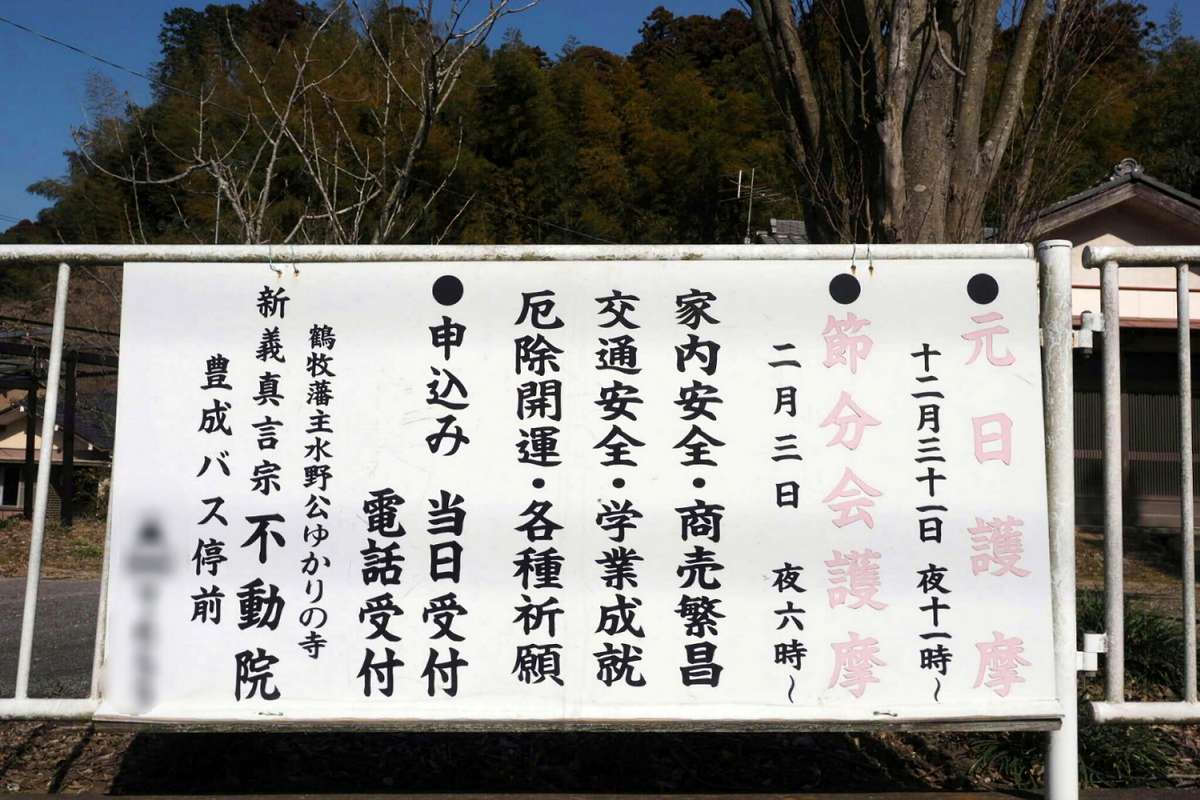 ●元日護摩
十二月三十一日 夜十一時〜
●節分会護摩
二月三日 夜六時〜
家内安全・商売繁昌
交通安全・学業成就
厄除開運・各種祈願
●申込み 当日受付
電話受付
鶴牧藩主水野公ゆかりの寺
新義真言宗 不動院
豊成バス停前